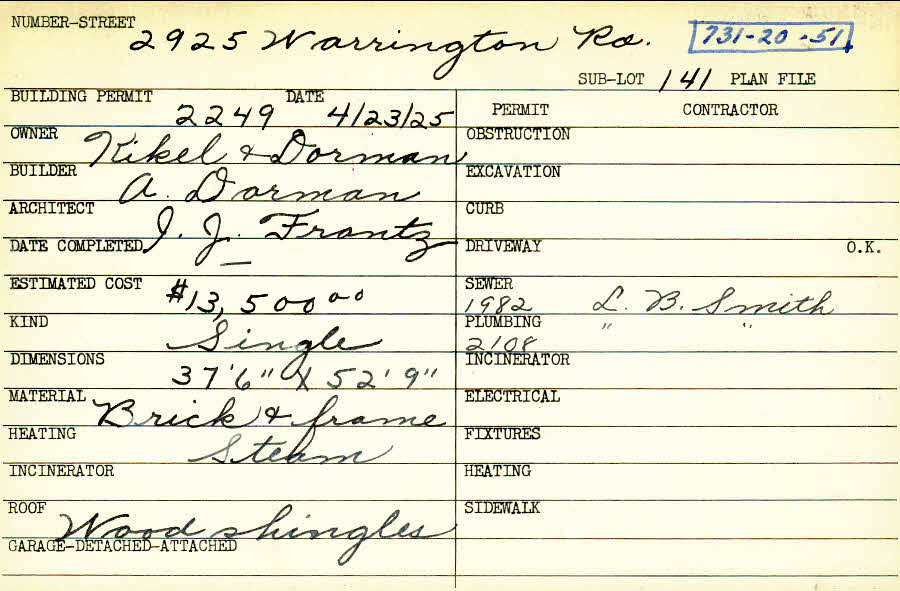 NUMBER-STREET 2925 Warrington Rd. 731-20-51
SUB-LOT 141 PLAN FILE
BUILDING PERMIT 2249 DATE 4/23/25
OWNER Kikel & Dorman
BUILDER A. Dorman
ARCHITECT I. J. Frantz
DATE COMPLETED —
ESTIMATED COST $13,500 00
KIND Single
DIMENSIONS 37'6" X 52'9"
MATERIAL Brick & frame
HEATING Steam
INCINERATOR
ROOF Wood shingles
GARAGE-DETACHED-ATTACHED
PERMIT CONTRACTOR
OBSTRUCTION
EXCAVATION
CURB
DRIVEWAY O.K.
SEWER
1982 L. B. Smith
PLUMBING " "
2108
INCINERATOR
ELECTRICAL
FIXTURES
HEATING
SIDEWALK